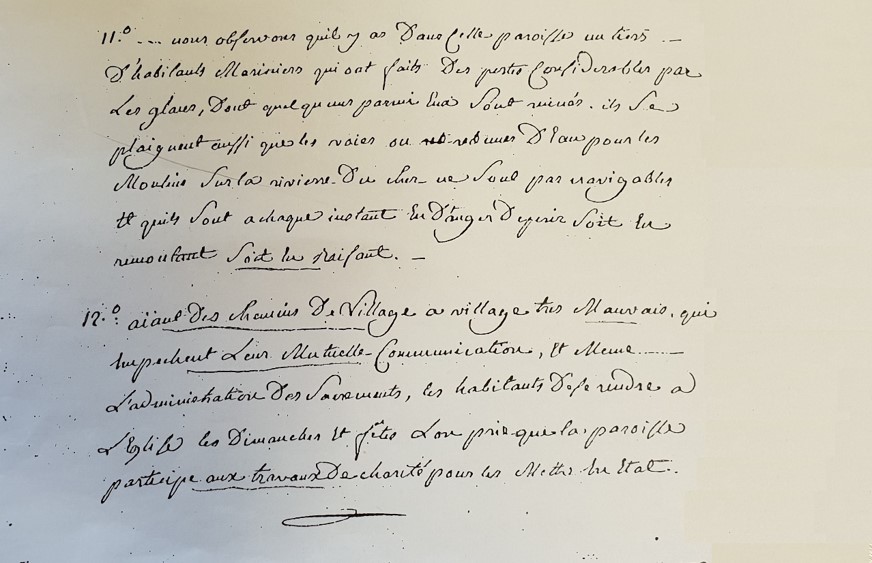 11.º ... nous observons quil y as Dans Cette paroisse un tiers
D'habitants Mariniers qui ont faits Des pertes Considerables par
Les glaces, Dont quelqu'uns parmi Eux Sont ruinés. ils Se
plaignent aussi que les voies ou retenues D'Eau pour les
Moulins Sur la riviere Du Cher ne Sont pas navigables
Et quils Sont a chaque instant En Danger Deperir Soit En
remontant Soit En
12.º aïant Des Chemins De Village a village tres Mauvais, qui
Empechent Leur Mutuelle Communication, Et Meme
L'administration Des Sacrements, les habitants Dese rendre a
L'Eglise les Dimanches Et fêtes Lon prie que la paroisse
participe aux travaux De charité pour les Mettre En Etat..